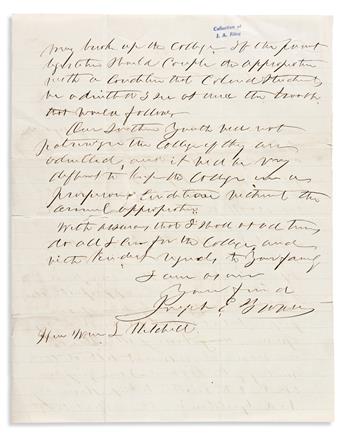 Collection of
J. A. Riley
may break up the College. If the
should Couple the appropriation
with a Condition that Colored Students
be admitted I see at once the trouble
that would follow.
Our Southern Youth will not
patronize the College if they are
admitted, and it will be very
difficult to keep the College in a
prosperous Condition without the
annual appropriation.
With assurances that I shall at all times
do all I can for the College, and
with kindest regards to Your family
I am as ever
Your friend
Joseph E Brown
Hon Wm L Mitchell